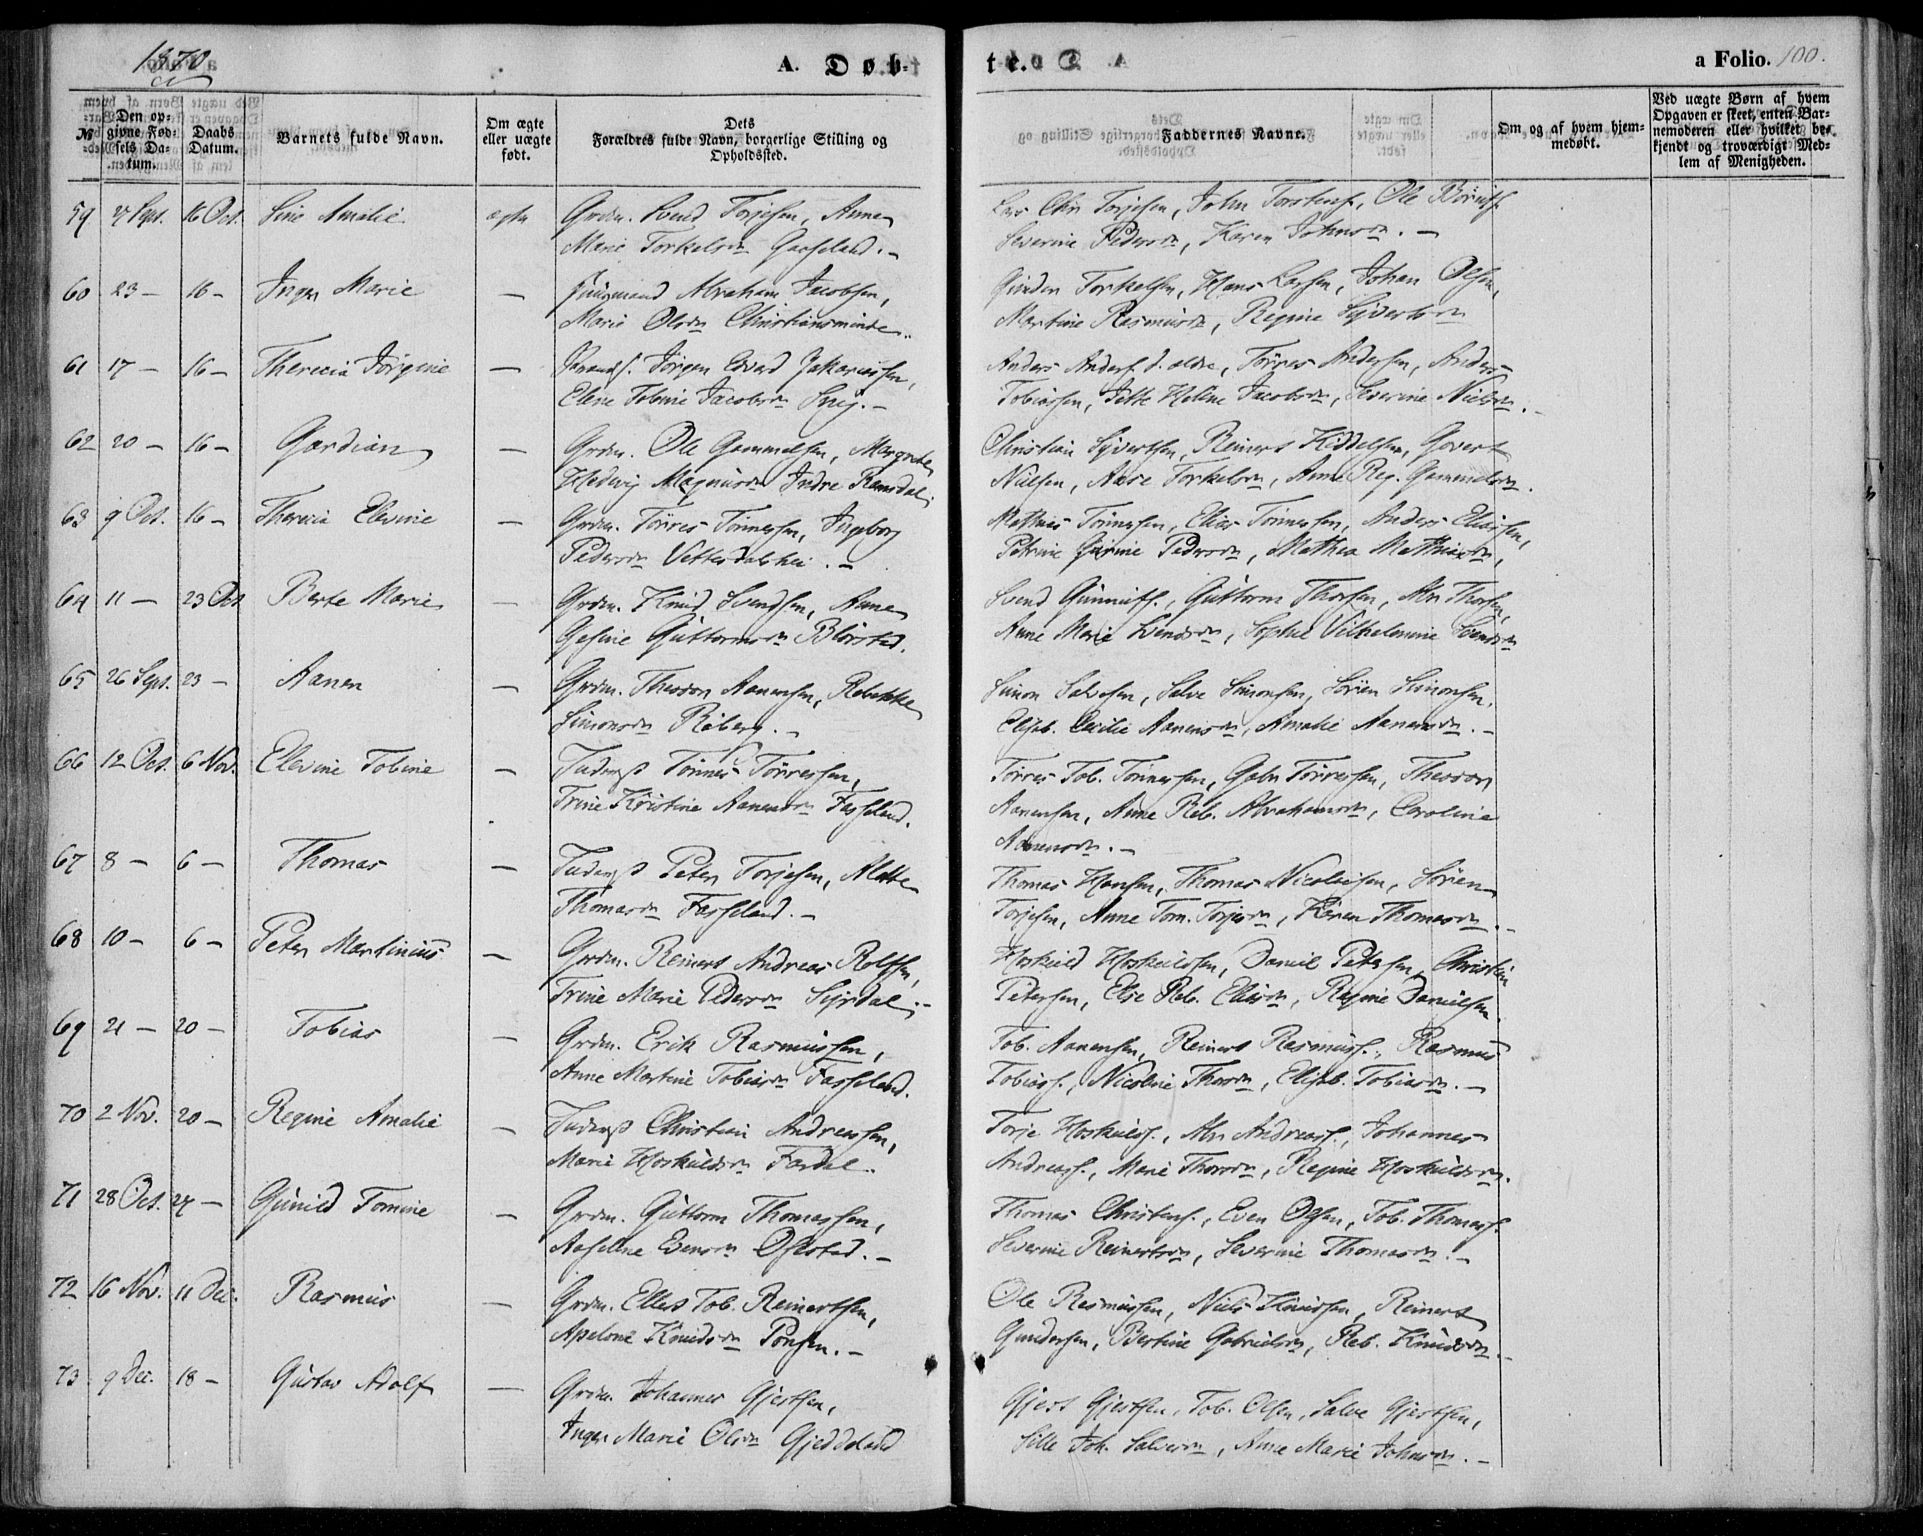 1870
A. Døb-
te.
a Folio. 100.
№
Den op-
givne Fød-
sels Da-
tum.
Daabs
Datum.
Barnets fulde Navn.
Om ægte
eller uægte
født.
Dets
Forældres fulde Navn, borgerlige Stilling og
Opholdssted.
Faddernes Navne.
Om og af hvem hjem-
medøbt.
Ved uægte Børn af hvem
Opgaven er skeet, enten Bar-
nemoderen eller hvilket be-
kjendt og troværdigt Med-
lem af Menigheden.
59 Sept. 16 Oct. Sine Amalie ægte Grdm. Svend Torjesen, Anne
Marie Torkelsdn
Lars Chr Torjesen, John Torstens., Ole
Severine Pedersdn, Karen Johnsdn. —
60 23 — 16 — Inger Marie — Abraham Jacobsen,
Marie Olsdn Christiansminde.
Gunder Torkelsen, Hans Larsen, Johan Olsen,
Martine Rasmusdn, Regine Sÿvertsdn
61 17 — 16 — Therecia Jörgine — Jörgen Edvard Zakariassen,
Elene Tobine Jacobsdn
Anders Anders. d. ældre, Törres Andersen, Anders
Tobiassen, Jette Helene Jacobsdn, Severine Nielsdn.
62 20 — 16 — Gardian — Grdm. Ole Gammelsen, Margrethe
Hedevig Magnusdn Indre Ramsdal.
Christian Sÿvertsen, Reinert Kiddelsen, Govert
Nielsen, Aase Torkelsdn, Anne Reg. Gammelsdn.
63 9 Oct. 16 — Therecia Elevine — Grdm. Törres Tönnesen, Ingeborg
Pedersdn Vetterdalshei. —
Mathias Tönnesen, Elias Tönnesen, Anders Eliassen,
Petrine Gurine Pedersdn, Mathea Mathiasdn,
64 11 — 23 Oct Berte Marie — Grdm. Knud Svendsen, Anne
Gesine Guttormsdn
Svend Gunnufs., Guttorm Thorsen, Abr Thorsen,
Anne Marie Svendsdn, Sophie Vilhelmine Svendsdn
65 26 Sept. 23 — Aanen — Grdm. Theodor Aanensen, Rebekke
Simonsdn Röberg. —
Simon Salvesen, Salve Simonsen, Sören Simonsen,
Elisab. Cecilie Aanensdn, Amalie Aanensdn. —
66 12 Oct. 6 Nov. Elevine Tobine — Tönnes Törresen,
Trine Kristine Aanensdn Fasseland.
Törres Tob. Tönnesen, Gabr Törresen, Theodor
Aanensen, Anne Reb. Abrahamsdn, Caroline
Aanensdn. —
67 8 — 6 — Thomas — Peter Torjesen, Mette
Thomasdn Fasseland. —
Thomas Hansen, Thomas Nicolaisen, Sören
Torjesen, Anne Tom. Torjesdn, Karen Thomasdn.
68 10 — 6 — Peter Martinius — Grdm. Reinert Andreas Rolfsen,
Trine Marie Pedersdn —
Hoskuld Hoskuldsen, Daniel Petersen, Christian
Petersen, Else Reb. Eliasdn, Regine Danielsen.
69 21 — 20 — Tobias — Grdm. Erik Rasmussen,
Anne Martine Tobiasdn Fasseland.
Tob. Aanensen, Reinert Rasmuss., Rasmus
Tobiass., Nicoline Thorsdn, Elisab. Tobiasdn. —
70 2 Nov. 20 — Regine Amalie — Christian Andreassen,
Marie Hoskuldsdn Fardal.
Torje Hoskulds., Abr Andreass., Johannes
Andreass., Marie Thorsdn, Regine Hoskuldsdn.
71 28 Oct. 27 — Gunild Tomine — Grdm. Guttorm Thomassen,
Aaseline Evensdn Ofstad. —
Thomas Christens., Even Olsen, Tob. Thomass.
Severine Reinertsdn, Severine Thomasdn. —
72 16 Nov. 11 Dec. Rasmus — Grdm. Ellert Tob. Reinertsen,
Apelone Knudsdn —
Ole Rasmussen, Niels Knudsen, Reinert
Gundersen, Bertine Gabrielsdn, Reb. Knudsdn. —
73 9 Dec. 18 — Gustav Adolf — Grdm. Johannes Gjertsen,
Inger Marie Olsdn
Gjert Gjertsen, Tob. Olsen, Salve Gjertsen,
Sille Joh. Salvesdn, Anne Marie Johnsdn. —